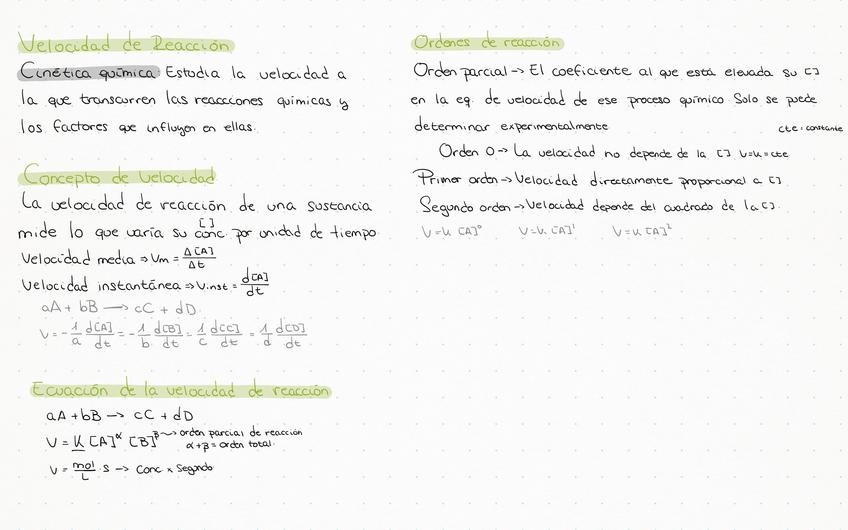 Velocidad de Reacción
Cinética química: Estudia la velocidad a
la que transcurren las reaccciones químicas y
los factores que influyen en ellas.
Concepto de velocidad
La velocidad de reacción de una sustancia
mide lo que varía su conc. [ ] por unidad de tiempo.
Velocidad media => Vm = Δ[A]/Δt
Velocidad instantánea => V.inst = d[A]/dt
aA + bB —> cC + dD
V = - 1/a d[A]/dt = - 1/b d[B]/dt = 1/c d[C]/dt = 1/d d[D]/dt
Ecuación de la velocidad de reacción
aA + bB —> cC + dD
V = K [A]^α [B]^β ~> orden parcial de reacción
α+β = orden total.
V = mol/L · s -> Conc x Segundo
Ordenes de reacción
Orden parcial -> El coeficiente al que está elevada su [ ]
en la eq. de velocidad de ese proceso químico Solo se puede
determinar experimentalmente
cte: constante
Orden 0 -> La velocidad no depende de la [ ] V=K=cte
Primer orden -> Velocidad directamente proporcional a [ ].
Segundo orden -> Velocidad depende del cuadrado de la [ ].
V=K [A]⁰ V=K [A]¹ V=K [A]²